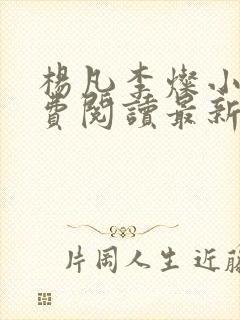 楊凡李燦小
費閱讀最新
片岡人生近藤